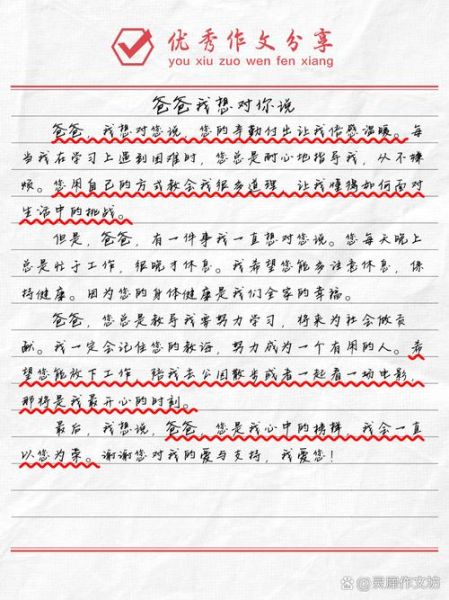 优秀作文分享
you xiu zuo wen fen xiang
爸爸我想对你说
爸爸，我想对您说，您的辛勤付出让我倍感温暖。每
当我在学习上遇到困难时，您总是耐心地指导我，从不嫌
烦。您用自己的方式教会我很多道理，让我懂得如何面对
生活中的挑战。
但是，爸爸，有一件事我一直想对您说。您每天晚上
总是忙于工作，很晚才休息。我希望您能多注意休息，保
持健康。因为您的身体健康是我们全家的幸福。
爸爸，您总是教导我要努力学习，将来为社会做贡
献。我一定会记住您的教诲，努力成为一个有用的人。希
望您能放下工作，陪我去公园散步或者一起看一场电影，
那将是我最开心的时刻。
最后，我想说，爸爸，您是我心中的榜样，我会一直
以您为荣。谢谢您对我的爱与支持，我爱您！